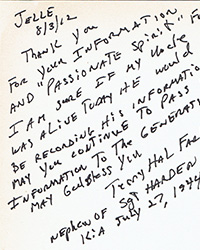 JELLE
8/3/12
THANK YOU
FOR YOUR INFORMATION
AND "PASSIONATE SPIRIT". FO
I AM SURE IF MY UNCLE
WAS ALIVE TODAY HE WOULD
BE RECORDING HIS INFORMATIO
MAY YOU CONTINUE TO PASS
INFORMATION TO THE GENERATI
MAY GOD BLESS YOU
TERRY HAL FAR
NEPHEW OF SGT HARDEN
KIA JULY 27, 1944